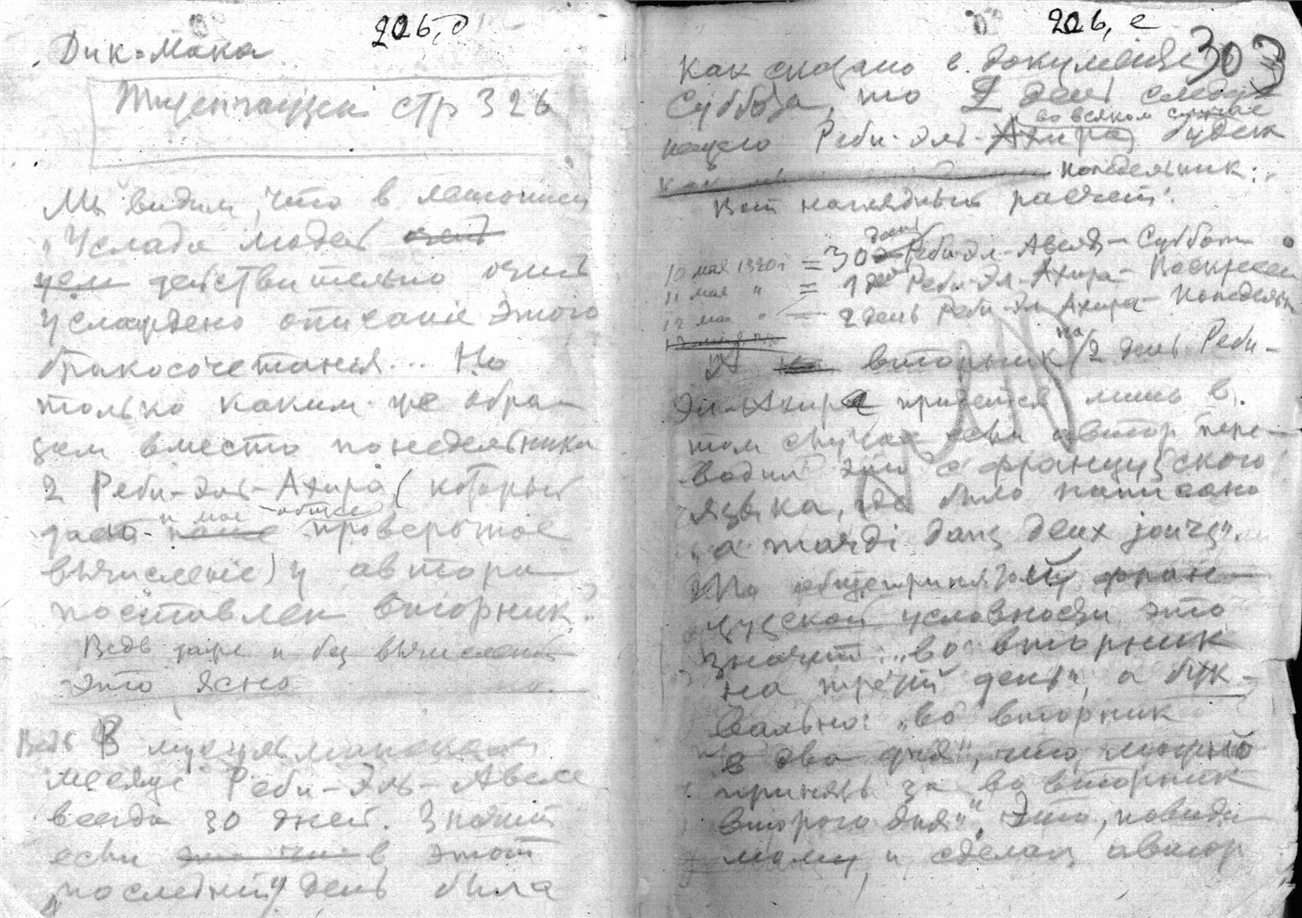 206, д
Дик-Мака
стр 326
Мы видим, что в летописи
„Услада людей
чем действительно очень
услаждено описание этого
бракосочетания... Но
только каким же обра-
зом вместо понедельника
2 Реби-Эль-Ахира (который
и мое общее
проверочное
вычисление) у автора
поставлен вторник?
Ведь даже и без вычислений
это ясно
Ведь В мусульманском
месяце Реби-Эль-Авеле
всегда 30 дней. Значит
если в этот
последний день была
206, е
303
Как сказано в документе
Суббота, то 2 день следу-
во всяком случае
ющего Реби-Эль-Ахира будет
понедельник:
Вот наглядный расчет:
10 мая 1320 г = 30 день Реби-Эл-Авеля – Суббота
11 мая " = 1 Реби-Эл-Ахира – Воскресен
12 мая " = 2 день Реби-Эл Ахира – Понедельн
А вторник на 2 день Реби-
Эл-Ахира придется лишь в
том случае если автор пере-
водил это с французского
языка, где было написано
„a mardi dans deux jours“
По общепринятой фран-
цузской условности это
значит: „во вторник
на третий день“, а бук-
вально: „во вторник
в два дня“, что можно
принять за „во вторник
второго дня“. Это, повиди-
мому, и сделал автор